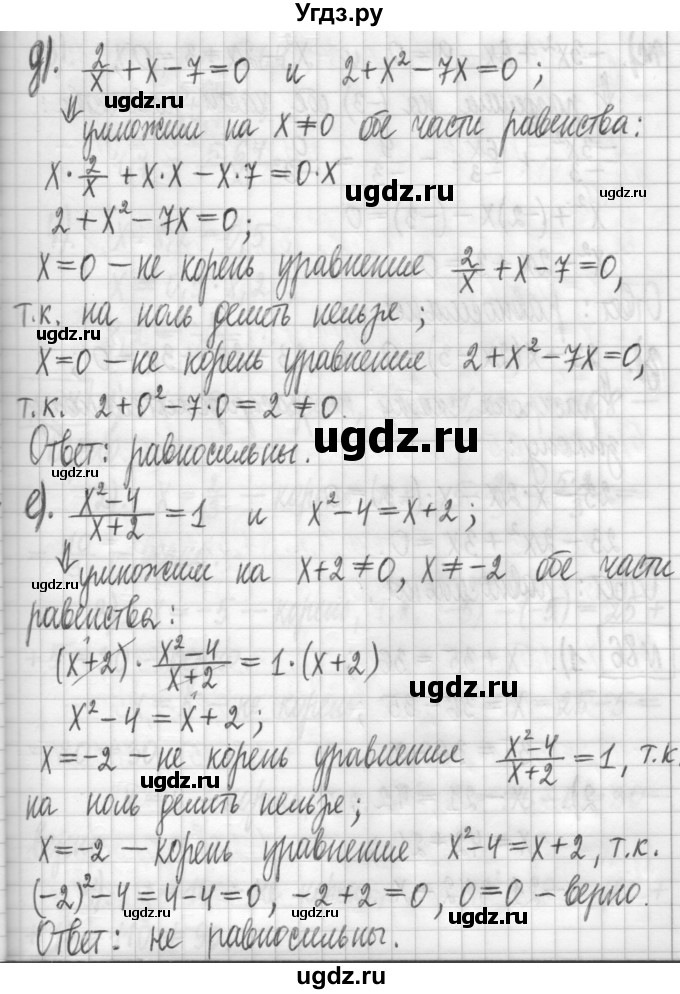 Угдз.ру
д). 2/x + x − 7 = 0 и 2 + x² − 7x = 0 ;
ugdz.ru
⇓ умножим на x ≠ 0 обе части равенства:
x · 2/x + x · x − x · 7 = 0 · x
ugdz.ru
ugdz.ru
2 + x² − 7x = 0 ;
ugdz.ru
x = 0 − не корень уравнения 2/x + x − 7 = 0,
т.к. на ноль делить нельзя ;
ugdz.ru
x = 0 − не корень уравнения 2 + x² − 7x = 0,
ugdz.ru
т.к. 2 + 0² − 7 · 0 = 2 ≠ 0.
ugdz.ru
Ответ: равносильны.
е). (x² − 4)/(x + 2) = 1 и x² − 4 = x + 2 ;
ugdz.ru
⇓ умножим на x + 2 ≠ 0, x ≠ −2 обе части
ugdz.ru
равенства :
(x + 2) · (x² − 4)/(x + 2) = 1 · (x + 2)
ugdz.ru
x² − 4 = x + 2 ;
x = −2 − не корень уравнения (x² − 4)/(x + 2) = 1, т.к.
ugdz.ru
на ноль делить нельзя;
x = −2 − корень уравнения x² − 4 = x + 2, т.к.
ugdz.ru
(−2)² − 4 = 4 − 4 = 0, −2 + 2 = 0, 0 = 0 − верно.
ugdz.ru
ugdz.ru
Ответ: не равносильны.
ugdz.ru